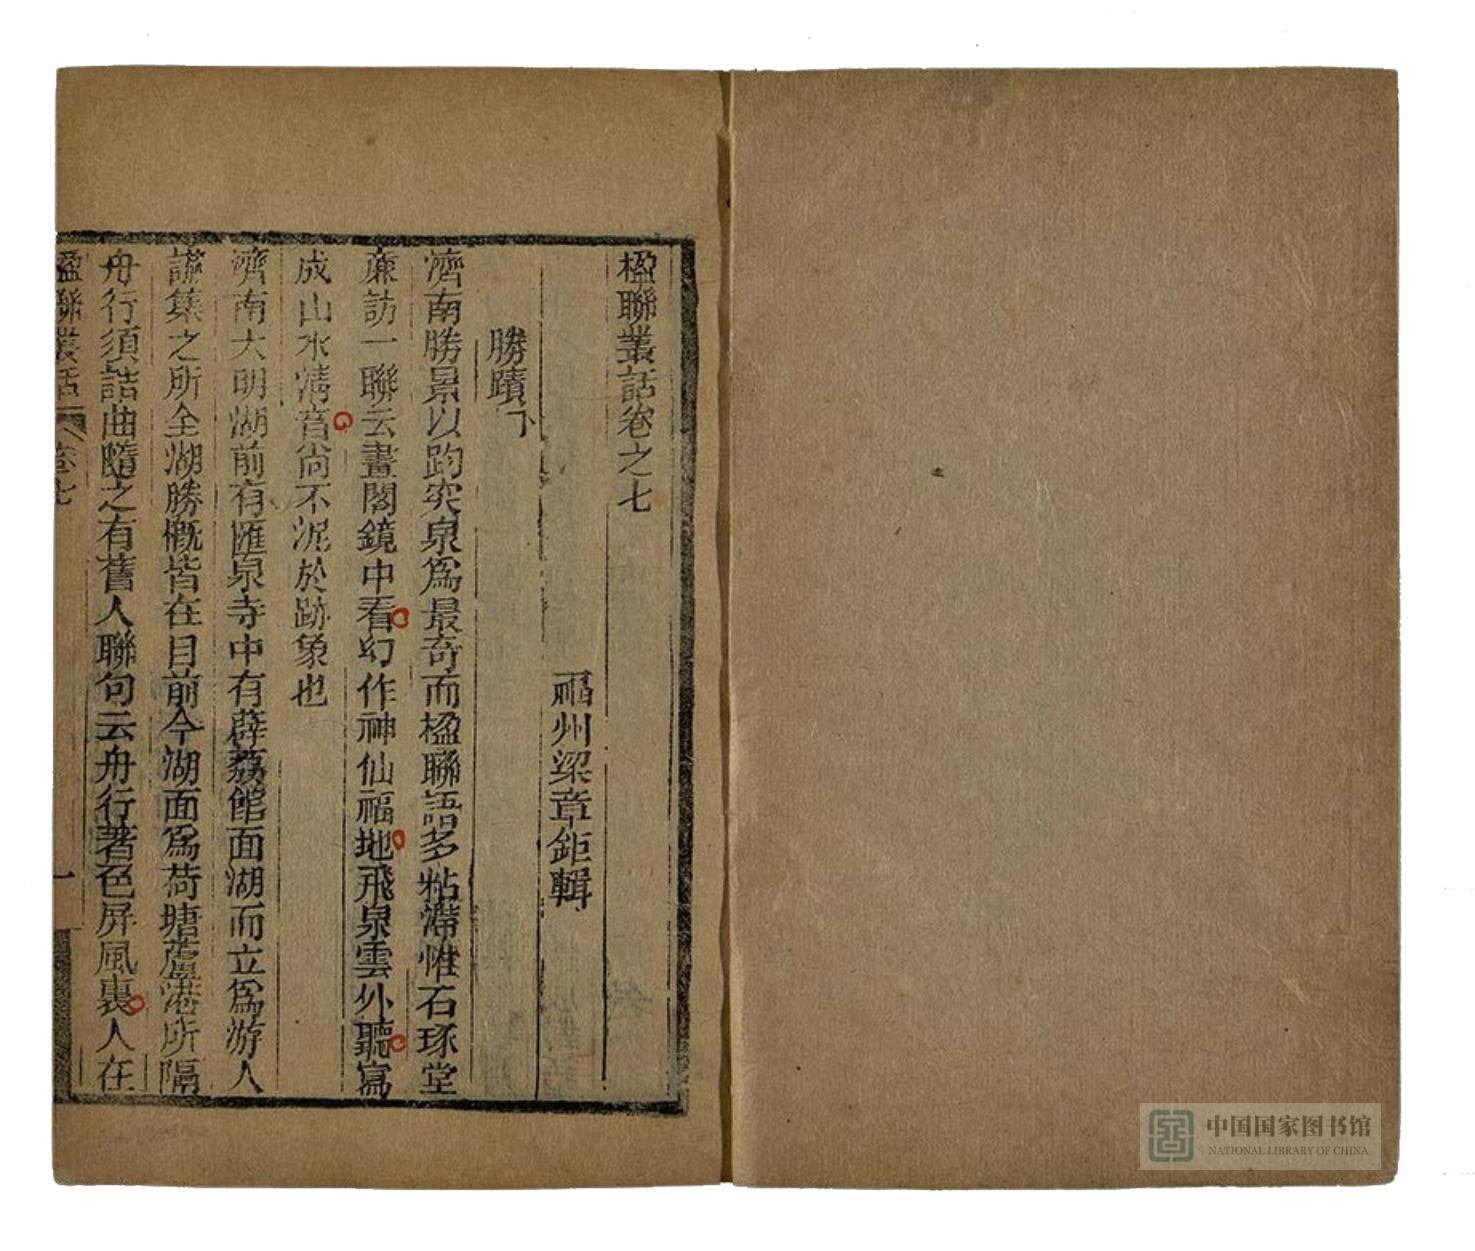 楹聯叢話卷之七
福州梁章鉅輯
勝蹟下
濟南勝景以趵突泉爲最奇而楹聯語多粘滯惟石琢堂
廉訪一聯云畫閣鏡中看幻作神仙福地飛泉雲外聽寫
成山水清音尙不泥於跡象也
濟南大明湖前有匯泉寺中有薜荔館面湖而立爲游人
讌集之所全湖勝槪皆在目前今湖面爲荷塘蘆港所隔
舟行須詰曲隨之有舊人聯句云舟行著色屏風裏人在
楹聯叢話 卷七 一
中国国家图书馆
NATIONAL LIBRARY OF CHINA